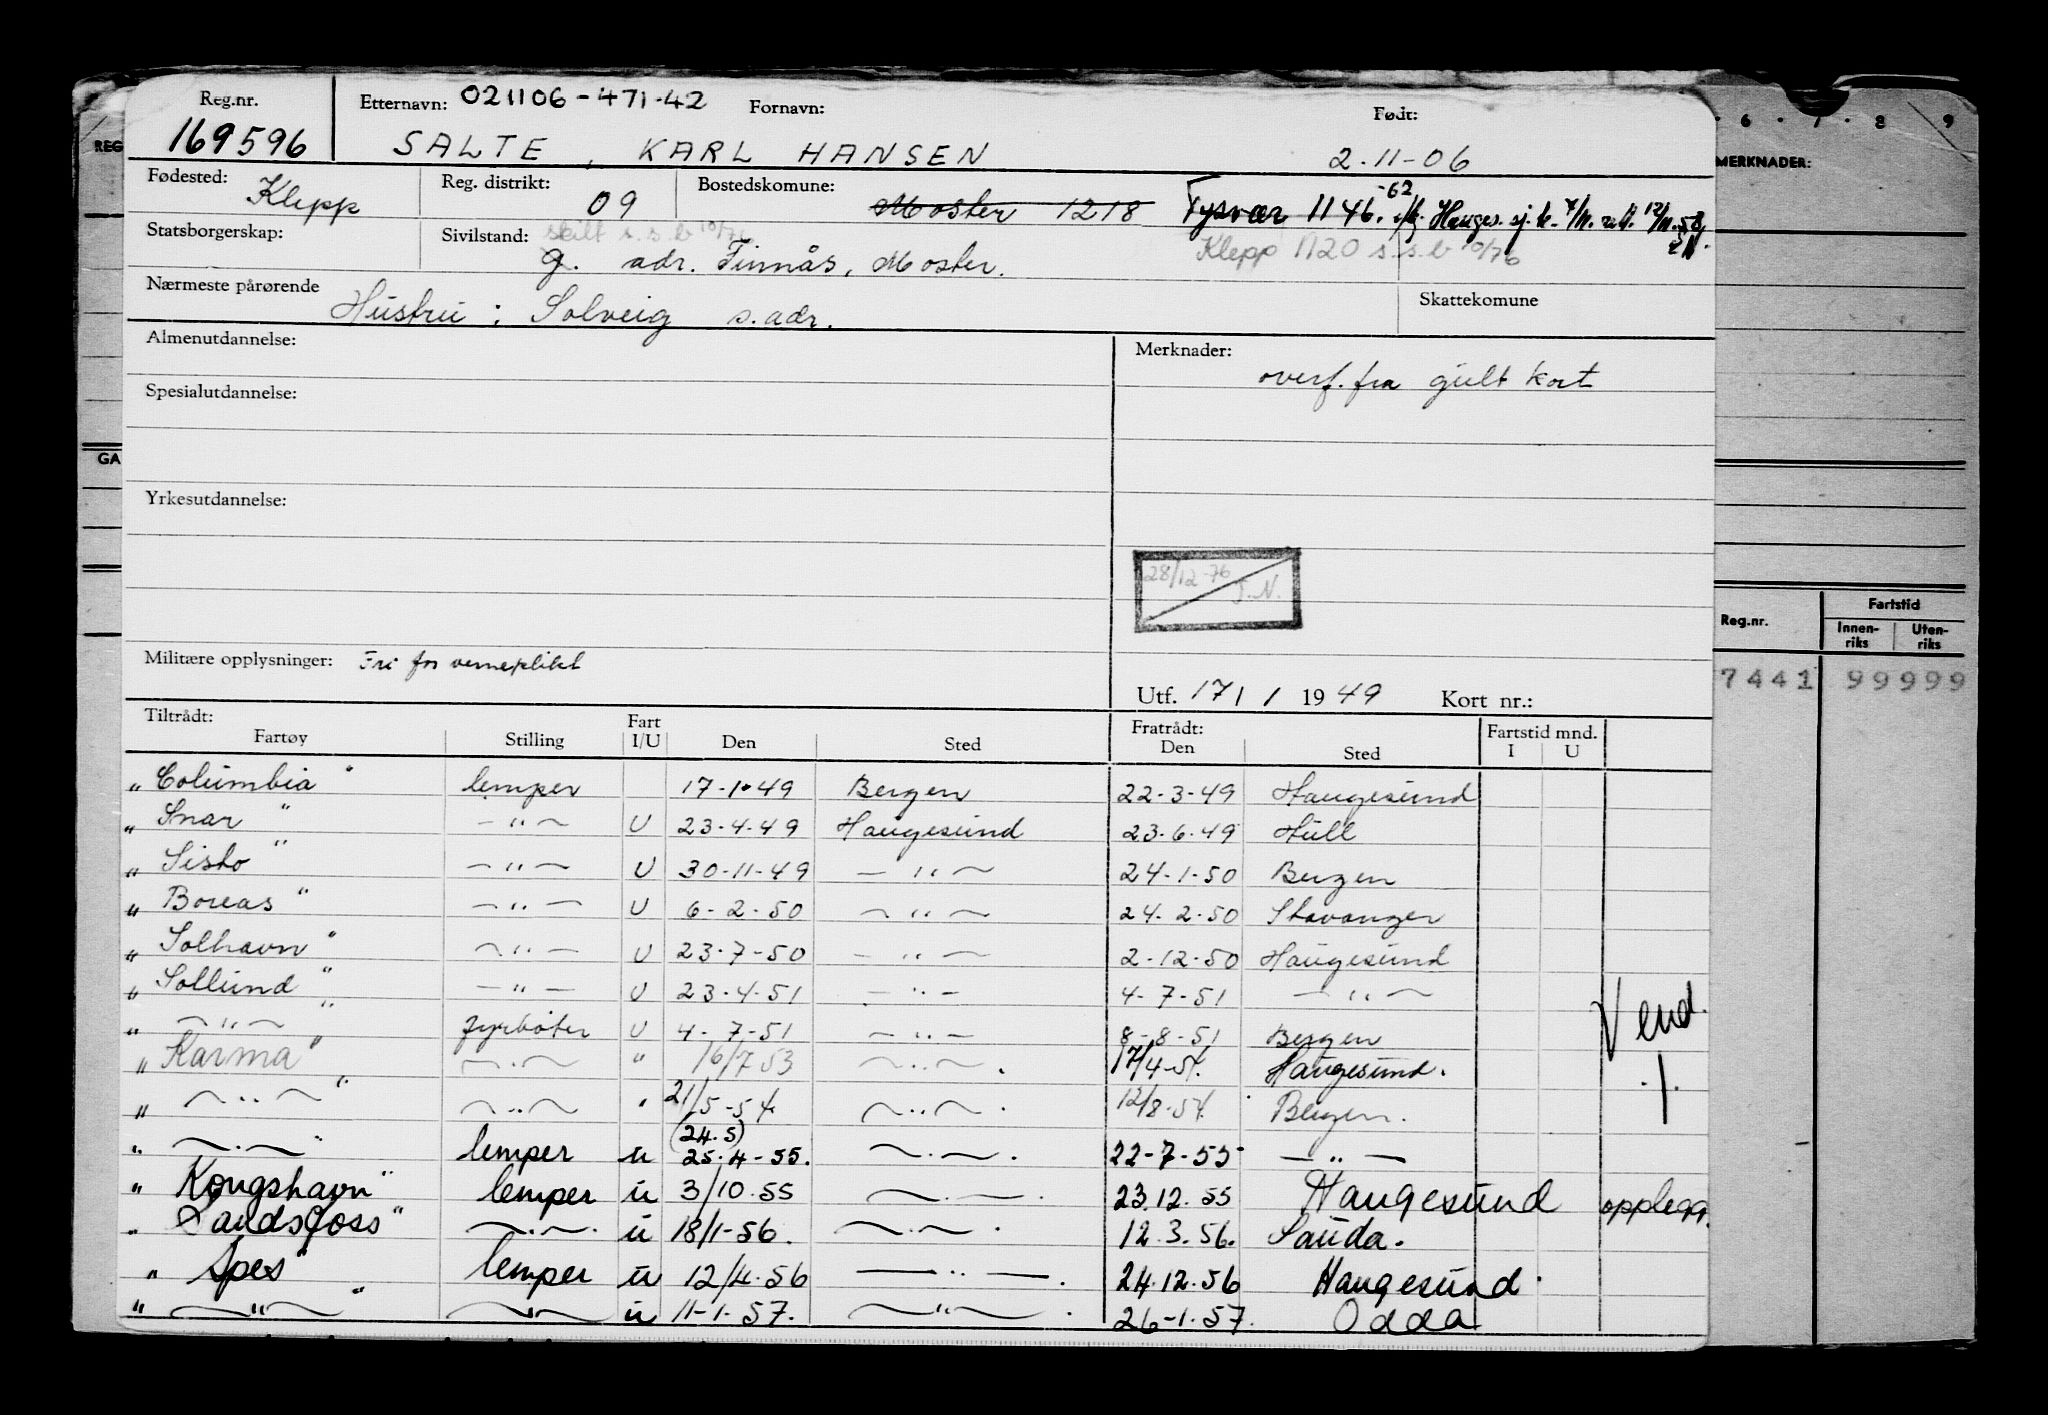 Reg.nr. Etternavn: 021106-471-42 Fornavn: Født:
169596 SALTE, KARL HANSEN 2.11-06
Fødested: Klepp Reg. distrikt: 09 Bostedskomune: Moster 1218 Tysvær 1146. -62
Klepp 1120 s.s.b 10/76
Statsborgerskap: Sivilstand: skilt s.s.b 10/76
g. adr. Finnås, Moster.
Nærmeste pårørende Hustru: Solveig s.adr. Skattekomune
Almenutdannelse: Merknader:
overf. fra gult kort
Spesialutdannelse:
Yrkesutdannelse:
28/12-76 T.N.
Militære opplysninger: Fri for verneplikt
Utf. 17/1 1949 Kort nr.:
Tiltrådt: Fartøy Stilling Fart I/U Den Sted Fratrådt: Den Sted Fartstid mnd. I U
"Columbia" lemper 17-1-49 Bergen 22-3-49 Haugesund
"Snar" —"— U 23-4-49 Haugesund 23-6-49 Hull
"Sisto" —"— U 30-11-49 —"— 24-1-50 Bergen
"Boreas" —"— U 6-2-50 —"— 24-2-50 Stavanger
"Solhavn" —"— U 23-7-50 —"— 2-12-50 Haugesund
"Sollund" —"— U 23-4-51 —"— 4-7-51 —"—
"—"—" fyrbøter U 4-7-51 —"— 8-8-51 Bergen
"Karma" —"— " 16/7 53 —"—. 17/4-54. Haugesund.
"—"—" —"— " 21/5-54 —"—. 12/8-54. Bergen.
(24.5)
"—"—" lemper u 25-4-55. —"—. 22-7-55 —"—
"Kongshavn" lemper u 3/10.55 —"—. 23.12.55 Haugesund opplegg.
"Sandsfoss" —"—. u 18/1-56. —"—. 12.3.56. Sauda.
"Spes" lemper u 12/4.56 —"—. 24.12.56 Haugesund.
"—"—" —"— u 11-1-57. —"—. 26-1-57. Odda
Vend
./.
REG
GA
6 . 7 . 8 9
MERKNADER:
Reg.nr. Fartstid
Innen-riks Uten-riks
7441 99999